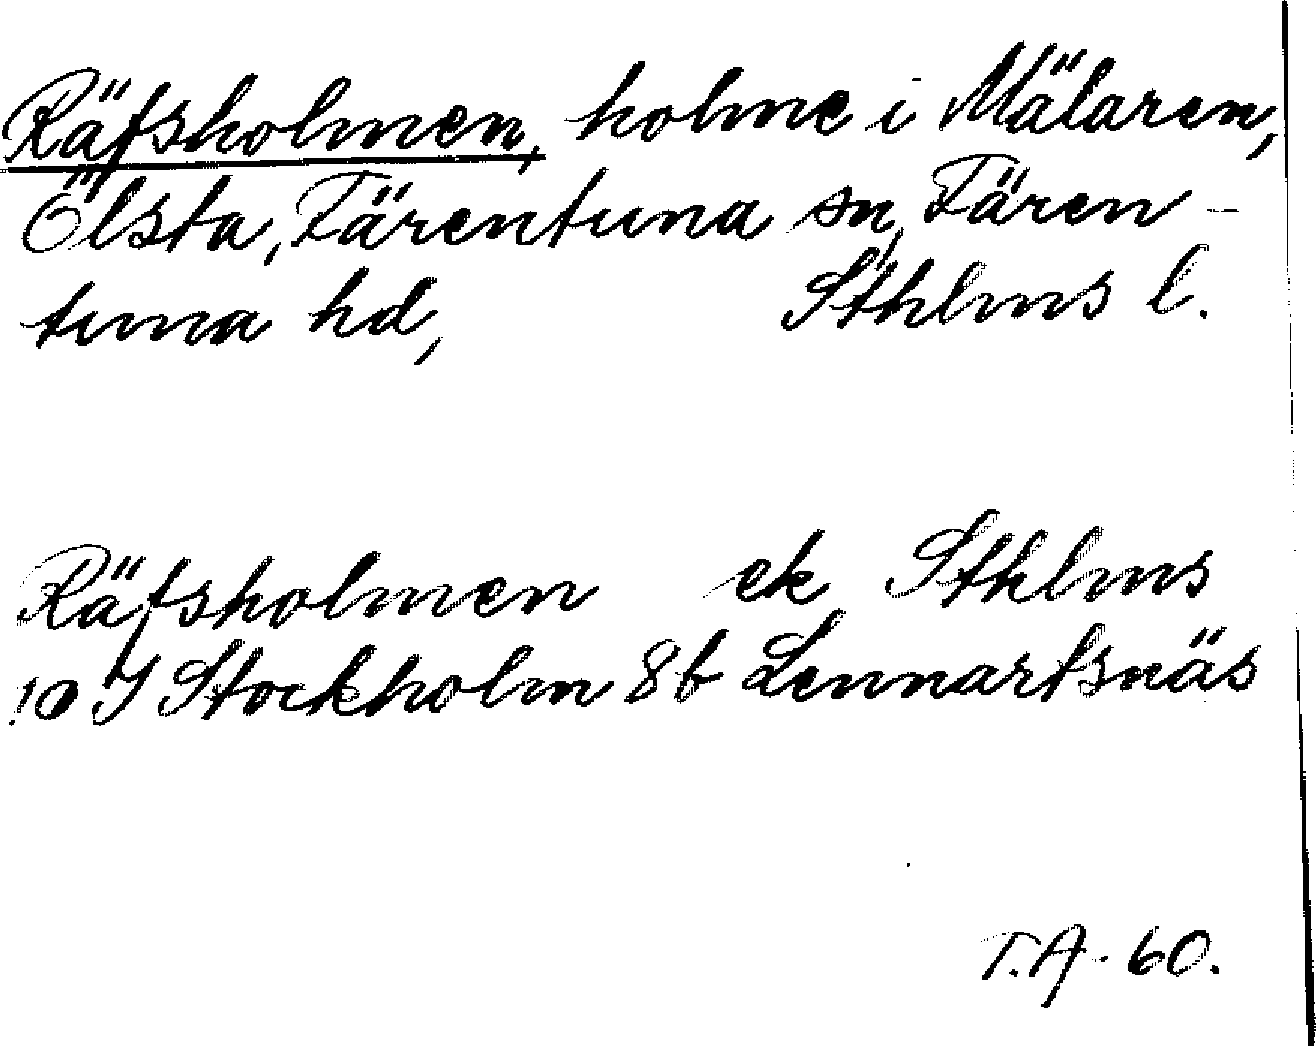 Räfsholmen, holme i Mälaren,
Ölsta, Färentuna sn, Fären-
tuna hd, Sthlms l.
Räfsholmen ek Sthlms
10 I Stockholm 8b Lennartsnäs
T.A. 60.